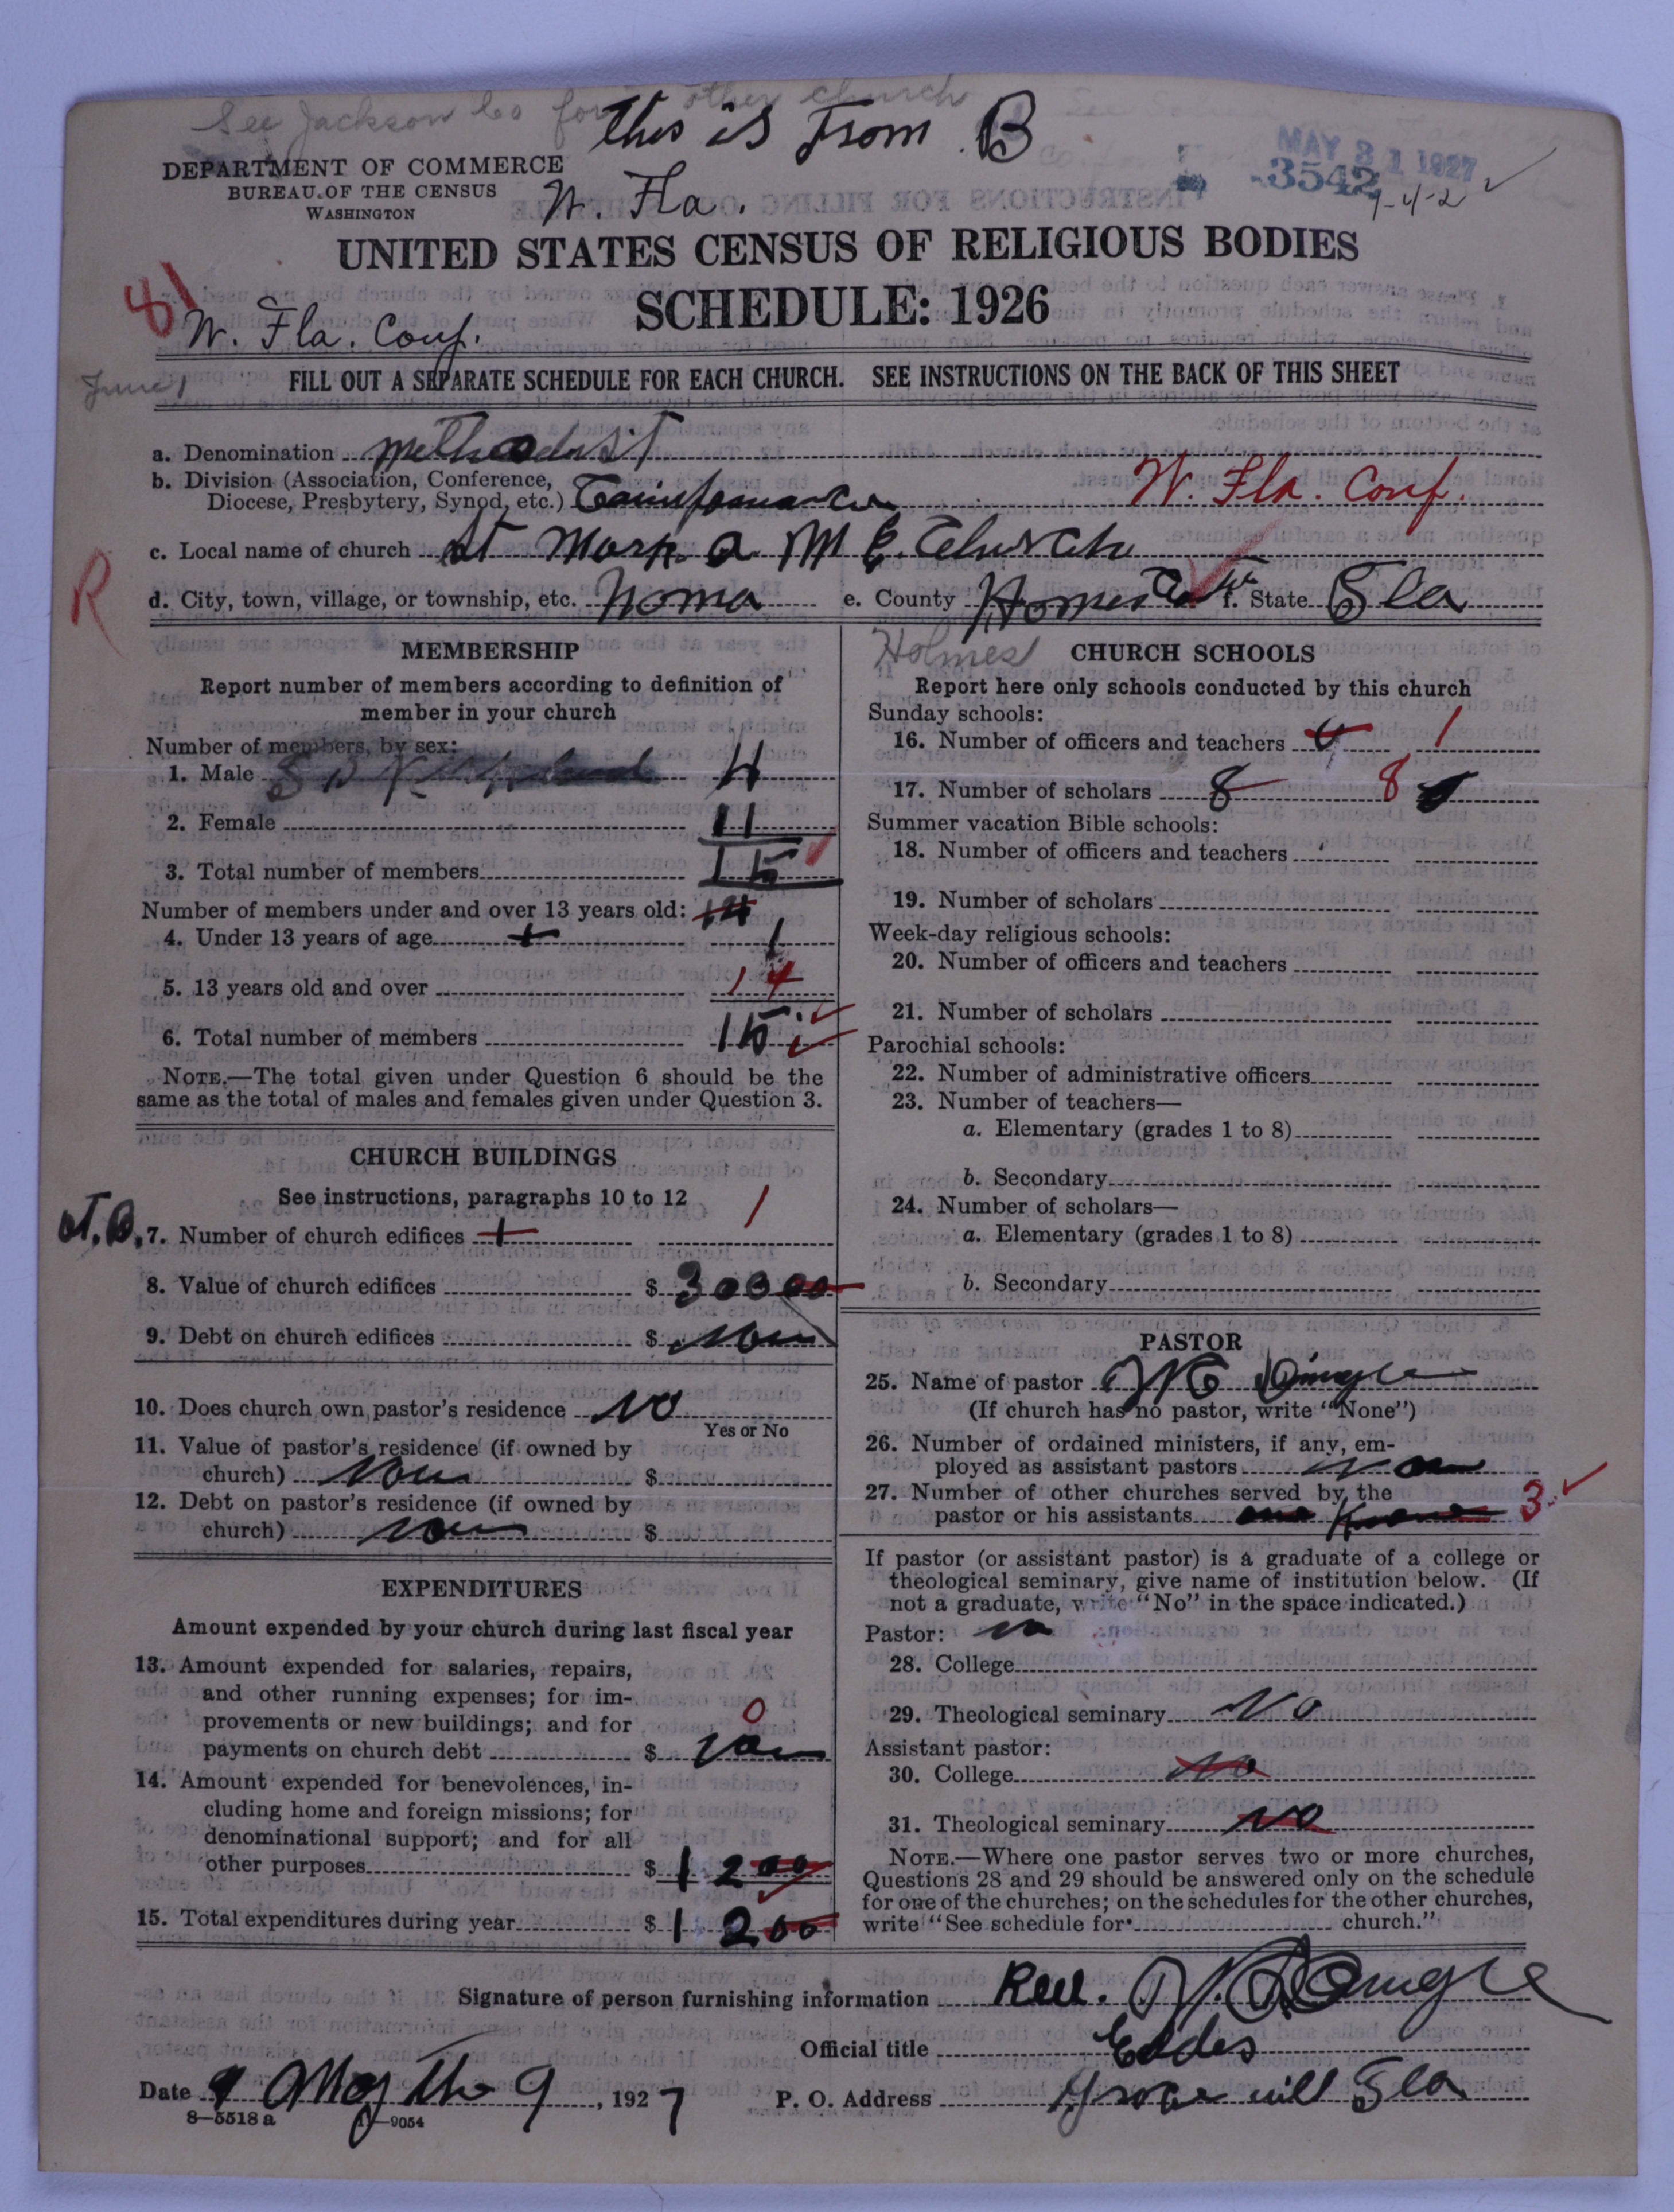 See Jackson Co for other church
This is From B
DEPARTMENT OF COMMERCE
BUREAU OF THE CENSUS
WASHINGTON
W. Fla.
MAY 31 1927
3542
1-4-2
UNITED STATES CENSUS OF RELIGIOUS BODIES
SCHEDULE: 1926
81
W. Fla. Conf.
June 1
FILL OUT A SEPARATE SCHEDULE FOR EACH CHURCH. SEE INSTRUCTIONS ON THE BACK OF THIS SHEET
a. Denomination Methodist
b. Division (Association, Conference,
Diocese, Presbytery, Synod, etc.) W. Fla. Conf.
c. Local name of church St Mark a M E. Church
R
d. City, town, village, or township, etc. Noma e. County Homes Co f. State Fla
Holmes
MEMBERSHIP
Report number of members according to definition of
member in your church
Number of members, by sex:
1. Male 4
2. Female 11
3. Total number of members 15
Number of members under and over 13 years old: 14
4. Under 13 years of age 1
5. 13 years old and over 14
6. Total number of members 15
NOTE.—The total given under Question 6 should be the
same as the total of males and females given under Question 3.
CHURCH BUILDINGS
See instructions, paragraphs 10 to 12
7. Number of church edifices 1 1
8. Value of church edifices $ 300 00
9. Debt on church edifices $ Non
10. Does church own pastor's residence No
Yes or No
11. Value of pastor's residence (if owned by
church) Non $
12. Debt on pastor's residence (if owned by
church) Non $
EXPENDITURES
Amount expended by your church during last fiscal year
13. Amount expended for salaries, repairs,
and other running expenses; for im-
provements or new buildings; and for 0
payments on church debt $ Non
14. Amount expended for benevolences, in-
cluding home and foreign missions; for
denominational support; and for all
other purposes $ 12 00
15. Total expenditures during year $ 12 00
CHURCH SCHOOLS
Report here only schools conducted by this church
Sunday schools:
16. Number of officers and teachers 1
17. Number of scholars 8 8
Summer vacation Bible schools:
18. Number of officers and teachers
19. Number of scholars
Week-day religious schools:
20. Number of officers and teachers
21. Number of scholars
Parochial schools:
22. Number of administrative officers
23. Number of teachers—
a. Elementary (grades 1 to 8)
b. Secondary
24. Number of scholars—
a. Elementary (grades 1 to 8)
b. Secondary
PASTOR
25. Name of pastor
(If church has no pastor, write "None")
26. Number of ordained ministers, if any, em-
ployed as assistant pastors Non
27. Number of other churches served by the
pastor or his assistants 3
If pastor (or assistant pastor) is a graduate of a college or
theological seminary, give name of institution below. (If
not a graduate, write "No" in the space indicated.)
Pastor: No
28. College
29. Theological seminary No
Assistant pastor:
30. College No
31. Theological seminary No
NOTE.—Where one pastor serves two or more churches,
Questions 28 and 29 should be answered only on the schedule
for one of the churches; on the schedules for the other churches,
write "See schedule for church."
Signature of person furnishing information Rev.
Official title
Date May the 9, 1927 P. O. Address Fla
8—5518 a —9054